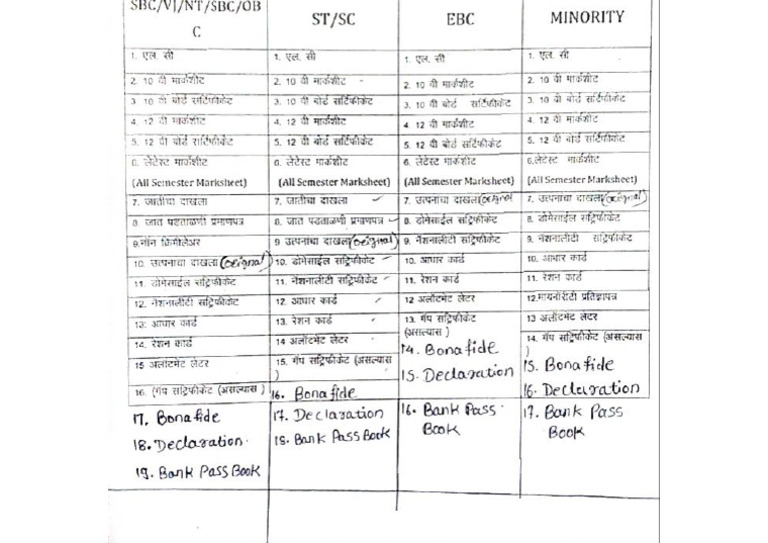 SBC/VJ/NT/SBC/OB
C
1. एल. सी
2. 10 वी मार्कशीट
3 10 वी बोर्ड सर्टिफीकेट
4. 12 वी मार्कशीट
5. 12 वी बोर्ड सर्टिफीकेट
6. लेटेस्ट मार्कशीट
(All Semester Marksheet)
7. जातीचा दाखला
8 जात पडताळणी प्रमाणपत्र
9.नॉन क्रिमीलेअर
10. उत्पनाचा दाखला (Original)
11. डोमेसाईल सट्रिफीकेट
12. नॅशनालीटी सट्रिफीकेट
13: आधार कार्ड
14. रेशन कार्ड
15 अलॉटमेंट लेटर
16. (गॅप सट्रिफीकेट (असल्यास )
17. Bonafide
18. Declaration.
19. Bank Pass Book
ST/SC
1. एल. सी
2. 10 वी मार्कशीट
3. 10 वी बोर्ड सर्टिफीकेट
4. 12 वी मार्कशीट
5. 12 वी बोर्ड सर्टिफीकेट
6. लेटेस्ट मार्कशीट
(All Semester Marksheet)
7. जातीचा दाखला
8. जात पडताळणी प्रमाणपत्र
9 उत्पनाचा दाखला (Original)
10. डोमेसाईल सट्रिफीकेट
11. नॅशनालीटी सट्रिफीकेट
12. आधार कार्ड
13. रेशन कार्ड
14 अलॉटमेंट लेटर
15. गॅप सट्रिफीकेट (असल्यास
)
16. Bonafide
17. Declaration
18. Bank Pass Book
EBC
1. एल. सी
2. 10 वी मार्कशीट
3. 10 वी बोर्ड सर्टिफीकेट
4 12 वी मार्कशीट
5. 12 वी बोर्ड सर्टिफीकेट
6. लेटेस्ट मार्कशीट
(All Semester Marksheet)
7. उत्पनाचा दाखला (Original
8. डोमेसाईल सट्रिफीकेट
9. नॅशनालीटी सट्रिफीकेट
10. आधार कार्ड
11. रेशन कार्ड
12 अलॉटमेंट लेटर
13. गॅप सट्रिफीकेट
(असल्यास )
14. Bonafide
15. Declaration
16. Bank Pass
Book
MINORITY
1. एल. सी
2. 10 वी मार्कशीट
3. 10 वी बोर्ड सर्टिफीकेट
4. 12 वी मार्कशीट
5. 12 वी बोर्ड सर्टिफीकेट
6.लेटेस्ट मार्कशीट
(All Semester Marksheet)
7. उत्पनाचा दाखला (Original)
8. डोमेसाईल सट्रिफीकेट
9. नॅशनालीटी सट्रिफीकेट
10. आधार कार्ड
11. रेशन कार्ड
12.मायनॉरीटी प्रतिज्ञापत्र
13 अलॉटमेंट लेटर
14. गॅप सट्रिफीकेट (असल्यास
)
15. Bonafide
16. Declaration
17. Bank Pass
Book